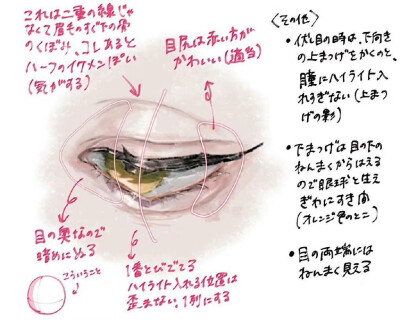 これは二重の線じゃ
なくて眉毛のすぐ下の骨
のくぼみ、コレあると
ハーフのイケメンぽい
(気がする)
目尻は赤い方が
かわいい(適当)
目の奥なので
暗めにぬる
こういうこと
1番とびでてる
ハイライト入れる位置は
歪まない、1列にする
<その他>
・伏し目の時は、下向き
の上まつげをかくのと、
瞳にハイライト入
れすぎない(上まつ
げの影)
・下まつげは目の下の
ねんまくからはえる
ので眼球と生え
ぎわにすき間
(オレンジ色のとこ)
・目の両端には
ねんまく見える